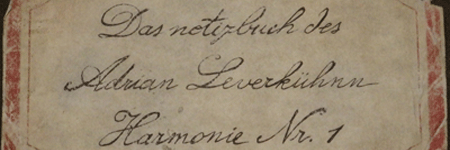 Das notizbuch des
Adrian Leverkühnn
Harmonie Nr. 1